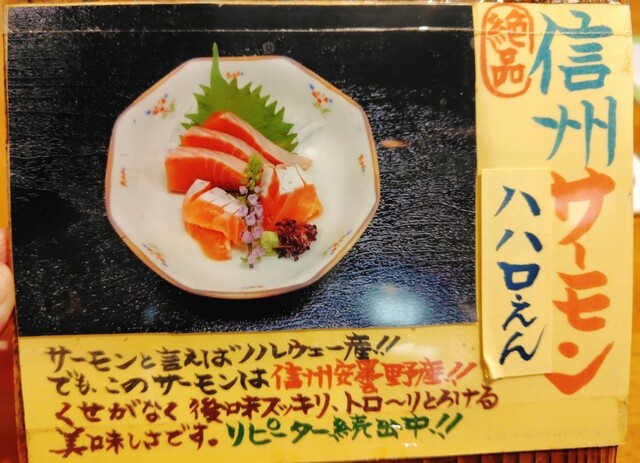 絶品
信州サーモン
八八〇えん
サーモンと言えばノルウェー産!!
でも、このサーモンは信州安曇野産!!
くせがなく後味スッキリ、トロ〜リとろける
美味しさです。リピーター続出中!!